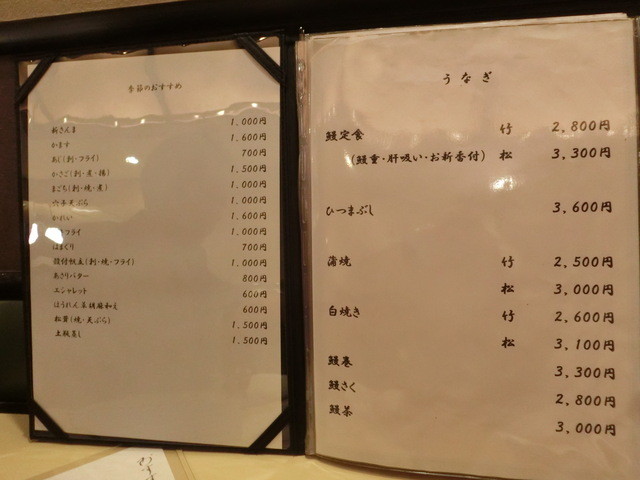 季節のおすすめ
新さんま 1,000円
かます 1,600円
あじ(刺・フライ) 700円
かさご(刺・煮・揚) 1,500円
まごち(刺・焼・煮) 1,000円
穴子天ぷら 1,000円
かれい 1,600円
フライ 1,000円
はまぐり 700円
殻付帆立(刺・焼・フライ) 1,000円
あさりバター 800円
エシャレット 600円
ほうれん草胡麻和え 600円
松茸(焼・天ぷら) 1,500円
土瓶蒸し 1,500円
うなぎ
鰻定食 竹 2,800円
(鰻重・肝吸い・お新香付) 松 3,300円
ひつまぶし 3,600円
蒲焼 竹 2,500円
松 3,000円
白焼き 竹 2,600円
松 3,100円
鰻巻 3,300円
鰻ざく 2,800円
鰻茶 3,000円